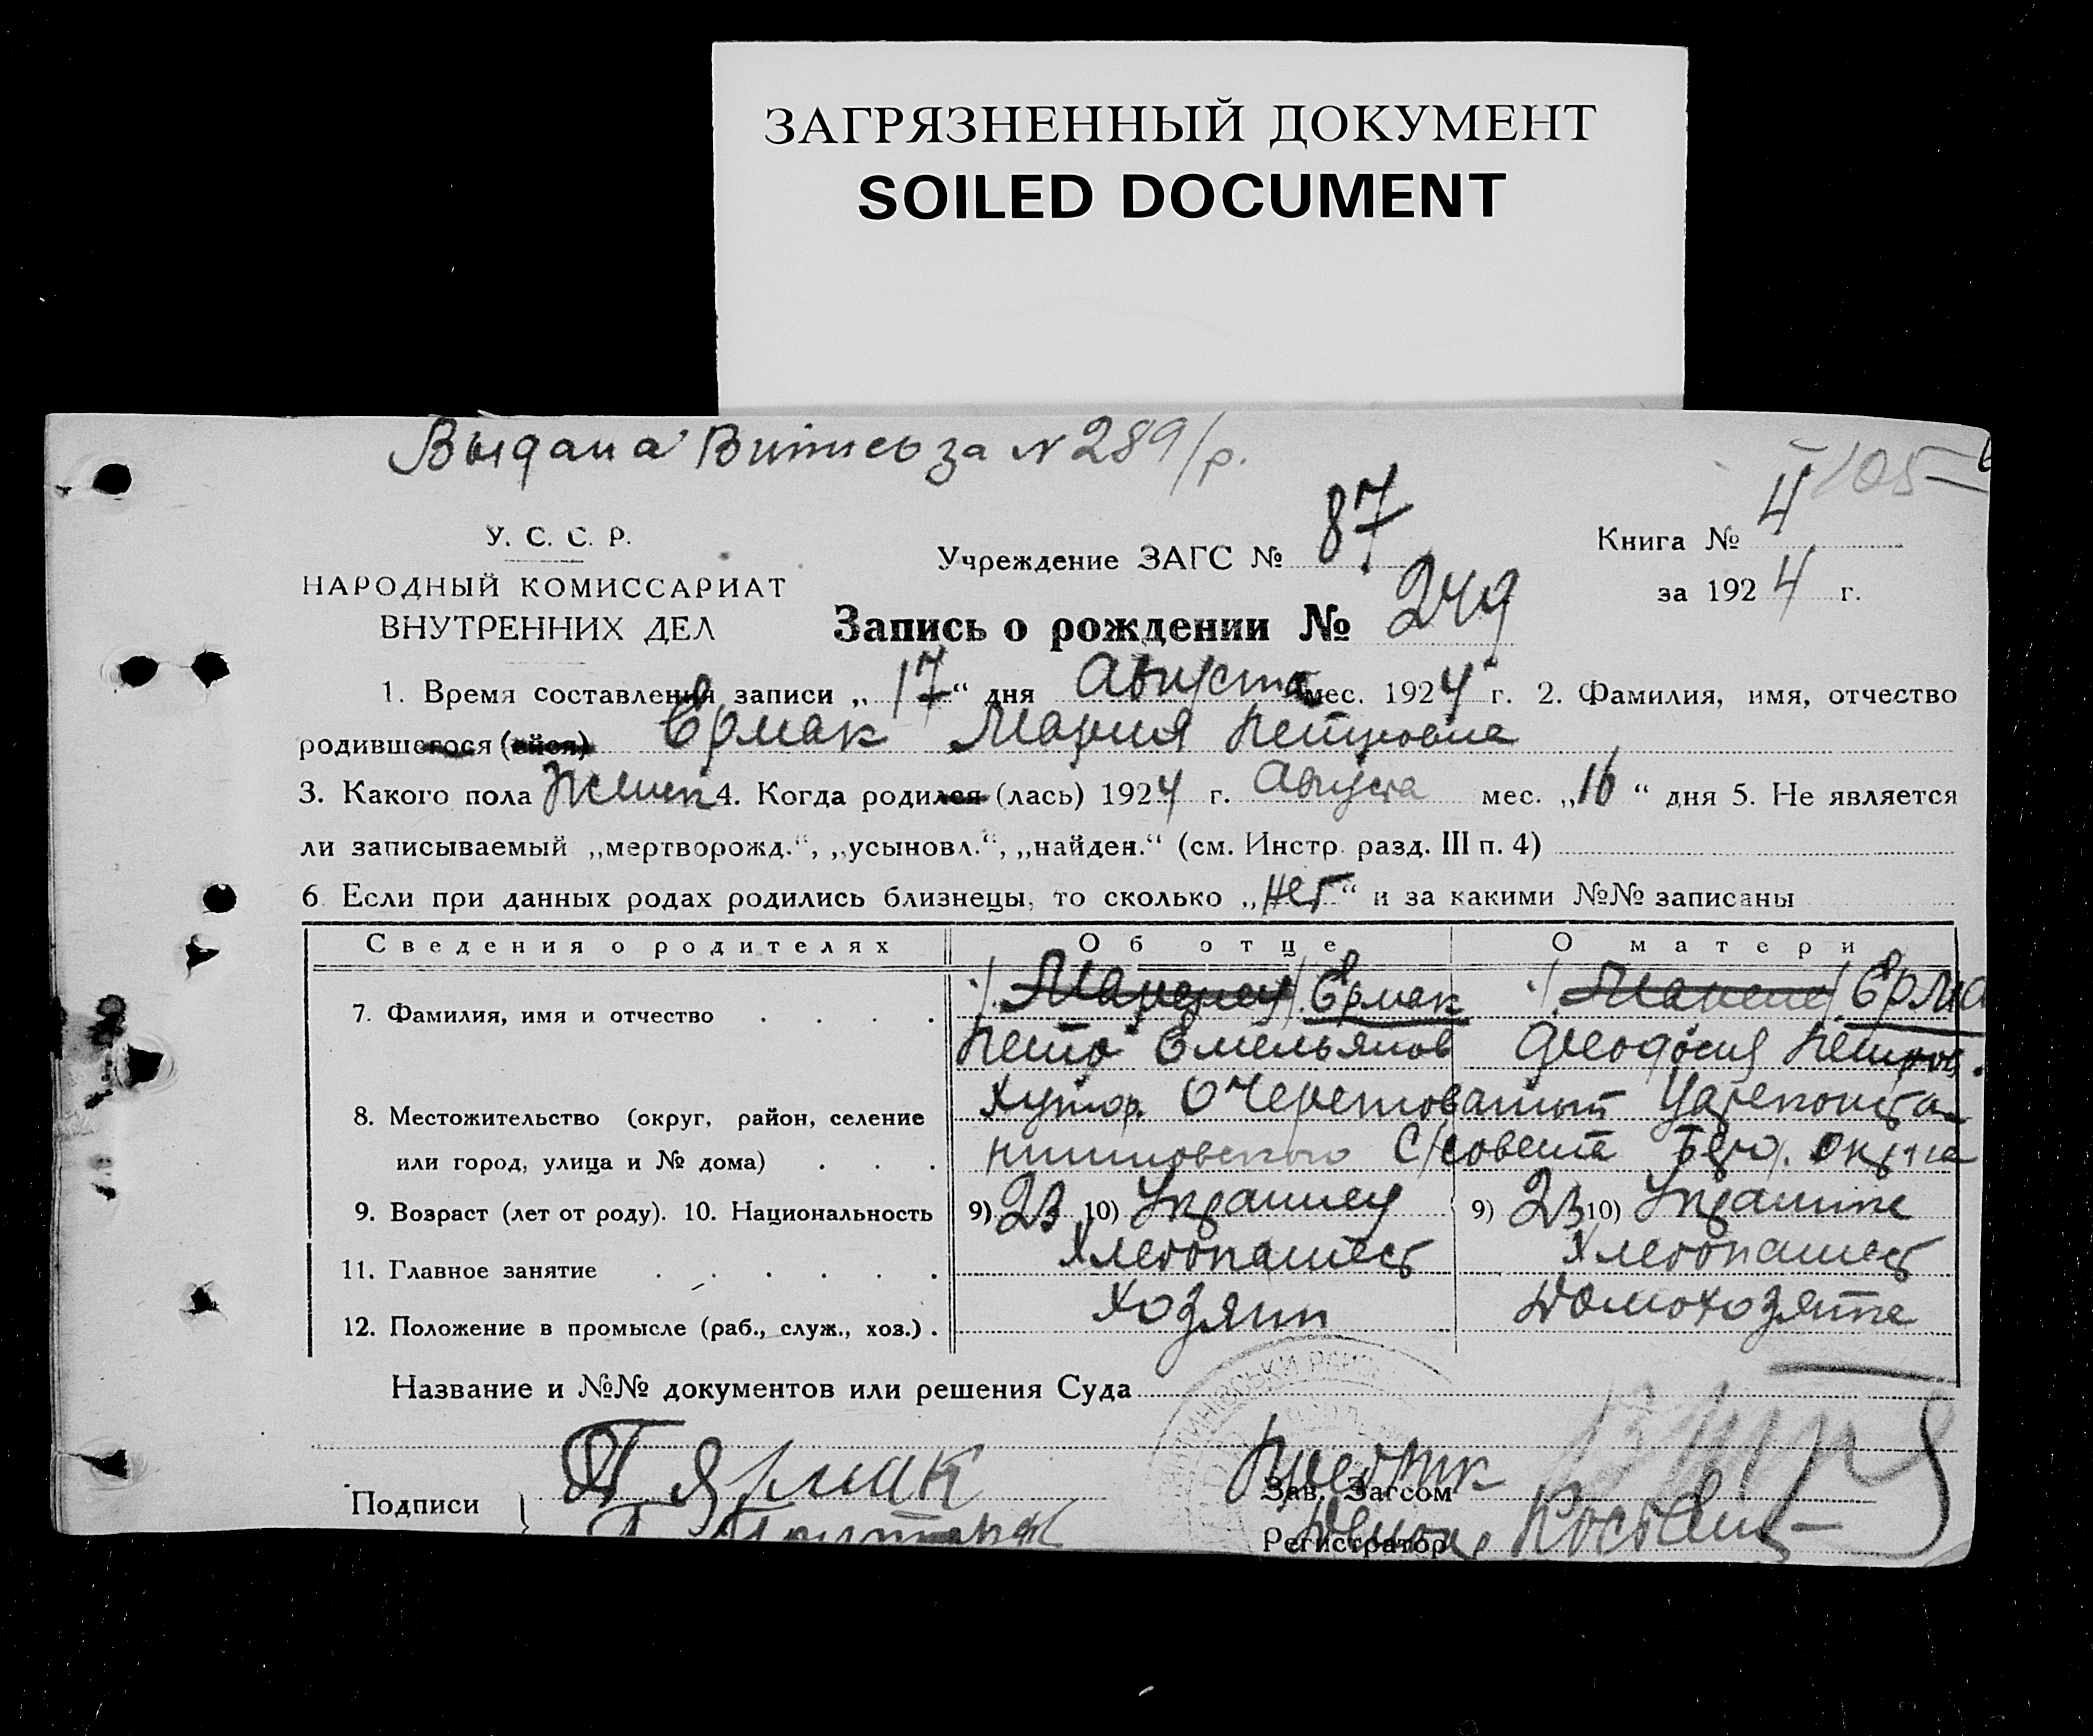 ЗАГРЯЗНЕННЫЙ ДОКУМЕНТ
SOILED DOCUMENT
Выдана Випись за N 289/р.
105
У. С. С. Р.
НАРОДНЫЙ КОМИССАРИАТ
ВНУТРЕННИХ ДЕЛ
Учреждение ЗАГС № 87
Книга № II
за 1924 г.
Запись о рождении № 249
1. Время составления записи „17“ дня Августа мес. 1924 г. 2. Фамилия, имя, отчество
родившегося (ейся) Ермак Мария Петровна
3. Какого пола Женск 4. Когда родился (лась) 1924 г. Августа мес. „16“ дня 5. Не является
ли записываемый „мертворожд.“, „усыновл.“, „найден.“ (см. Инстр. разд. III п. 4)
6 Если при данных родах родились близнецы, то сколько „нет“ и за какими №№ записаны
Сведения о родителях Об отце О матери
7. Фамилия, имя и отчество Ермак Ерма
Петр Емельянов Феодосия Петров.
8. Местожительство (округ, район, селение Хутор Очеретоватый Цареконста-
или город, улица и № дома) нтиновского С/совета Бердо. округа
9. Возраст (лет от роду). 10. Национальность 9) 23 10) Украинец 9) 23 10) Украинка
11. Главное занятие Хлебопашест Хлебопашест
12. Положение в промысле (раб., служ., хоз.) Хозяин Домохозяйка
Название и №№ документов или решения Суда
Подписи П Ярмак
Зав. Загсом
Регистратор